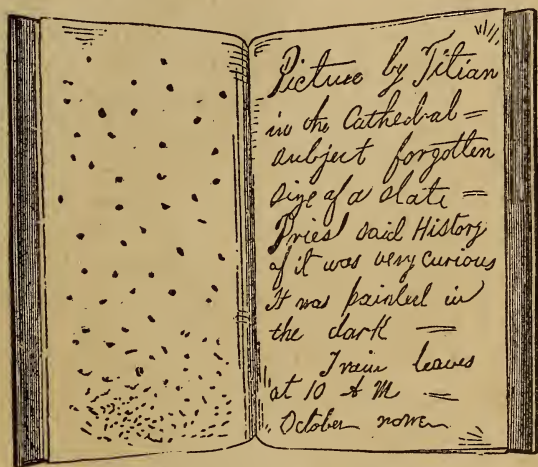 Picture by Titian
in the Cathedral =
subject forgotten
size of a slate =
Priest said History
of it was very curious
It was painted in
the dark =
Train leaves
at 10 A M
October